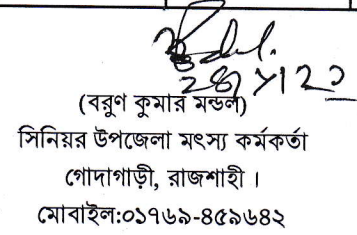 (বরুণ কুমার মন্ডল)
সিনিয়র উপজেলা মৎস্য কর্মকর্তা
গোদাগাড়ী, রাজশাহী ।
মোবাইল:০১৭৬৯-৪৫৯৬৪২